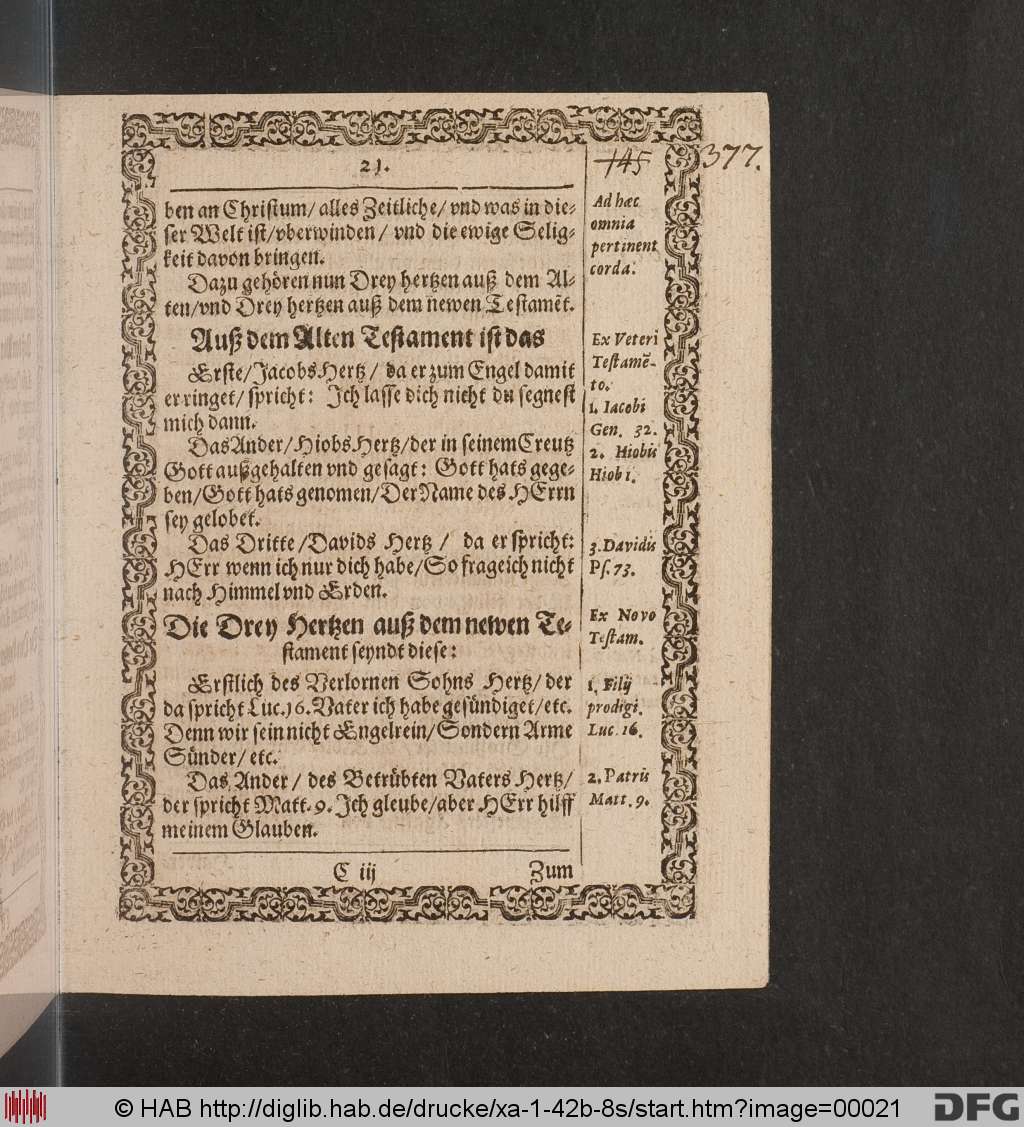 21.
145
377.
ben an Christum/ alles Zeitliche/ vnd was in die-
ser Welt ist/ vberwinden/ vnd die ewige Selig-
keit davon bringen.
Ad hæc
omnia
pertinent
corda.
Dazu gehören nun Drey hertzen auß dem Al-
ten/ vnd Drey hertzen auß dem newen Testamẽt.
Auß dem Alten Testament ist das
Ex Veteri
Testamẽ-
to.
Erste/ Jacobs Hertz/ da er zum Engel damit
er ringet/ spricht: Ich lasse dich nicht du segnest
mich dann.
1. Iacobi
Gen. 32.
Das Ander/ Hiobs Hertz/ der in seinem Creutz
Gott außgehalten vnd gesagt: Gott hats gege-
ben/ Gott hats genomen/ Der Name des HErrn
sey gelobet.
2. Hiobis
Hiob 1.
Das Dritte/ Davids Hertz/ da er spricht:
HErr wenn ich nur dich habe/ So frage ich nicht
nach Himmel vnd Erden.
3. Davidis
Ps. 73.
Die Drey Hertzen auß dem newen Te-
stament seyndt diese:
Ex Novo
Testam.
Erstlich des Verlornen Sohns Hertz/ der
da spricht Luc. 16. Vater ich habe gesündiget/ etc.
Denn wir sein nicht Engelrein/ Sondern Arme
Sünder/ etc.
1. Filij
prodigi.
Luc. 16.
Das Ander/ des Betrübten Vaters Hertz/
der spricht Matt. 9. Ich gleube/ aber HErr hilff
meinem Glauben.
2. Patris
Matt. 9.
C iij
Zum
© HAB http://diglib.hab.de/drucke/xa-1-42b-8s/start.htm?image=00021
DFG